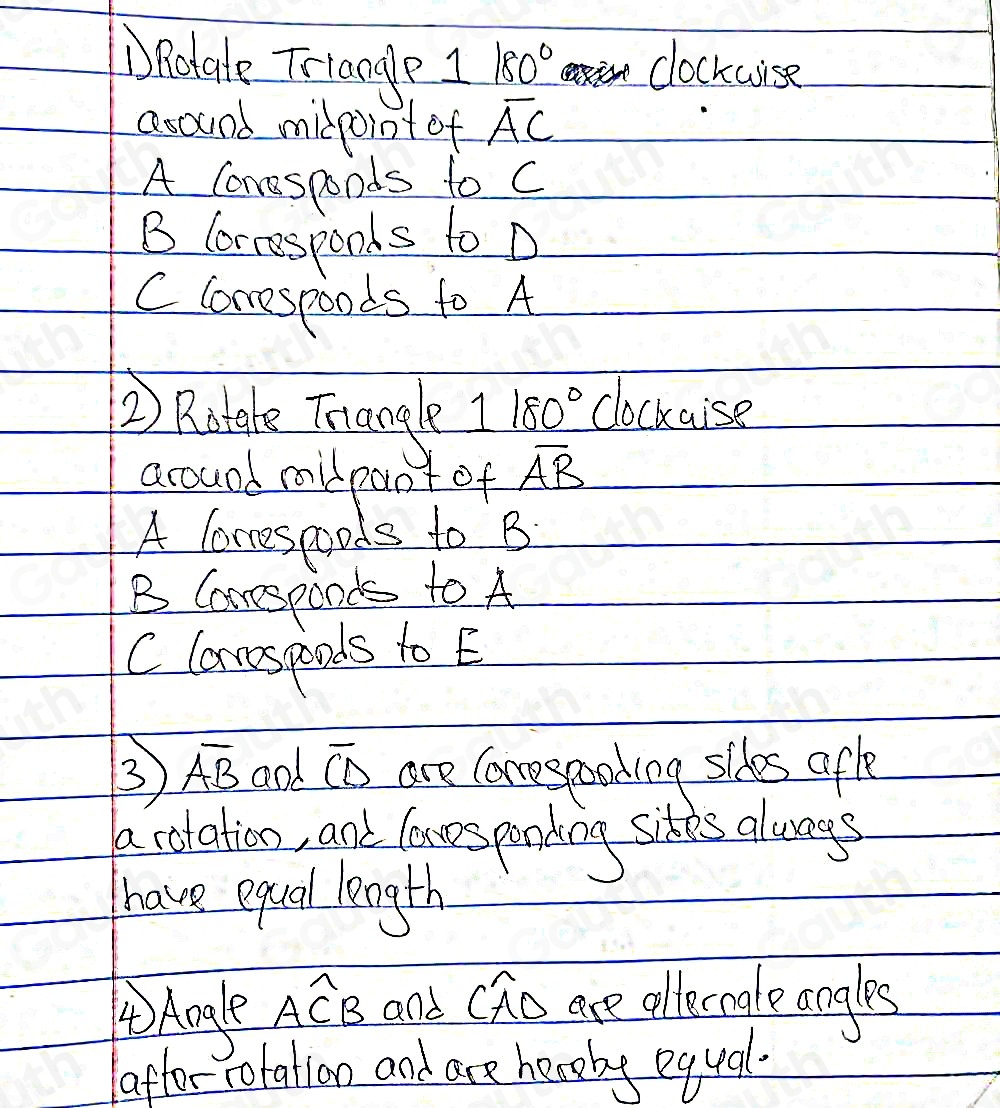 1) Rotate Triangle 1 180° clockwise
around midpoint of A̅C̅
A corresponds to C
B corresponds to D
C corresponds to A
2) Rotate Triangle 1 180° clockwise
around midpoint of A̅B̅
A corresponds to B
B corresponds to A
C corresponds to E
3) A̅B̅ and C̅D̅ are corresponding sides afte
a rotation, and corresponding sides always
have equal length
4) Angle AĈB and CÂD are alternate angles
after rotation and are hereby equal.